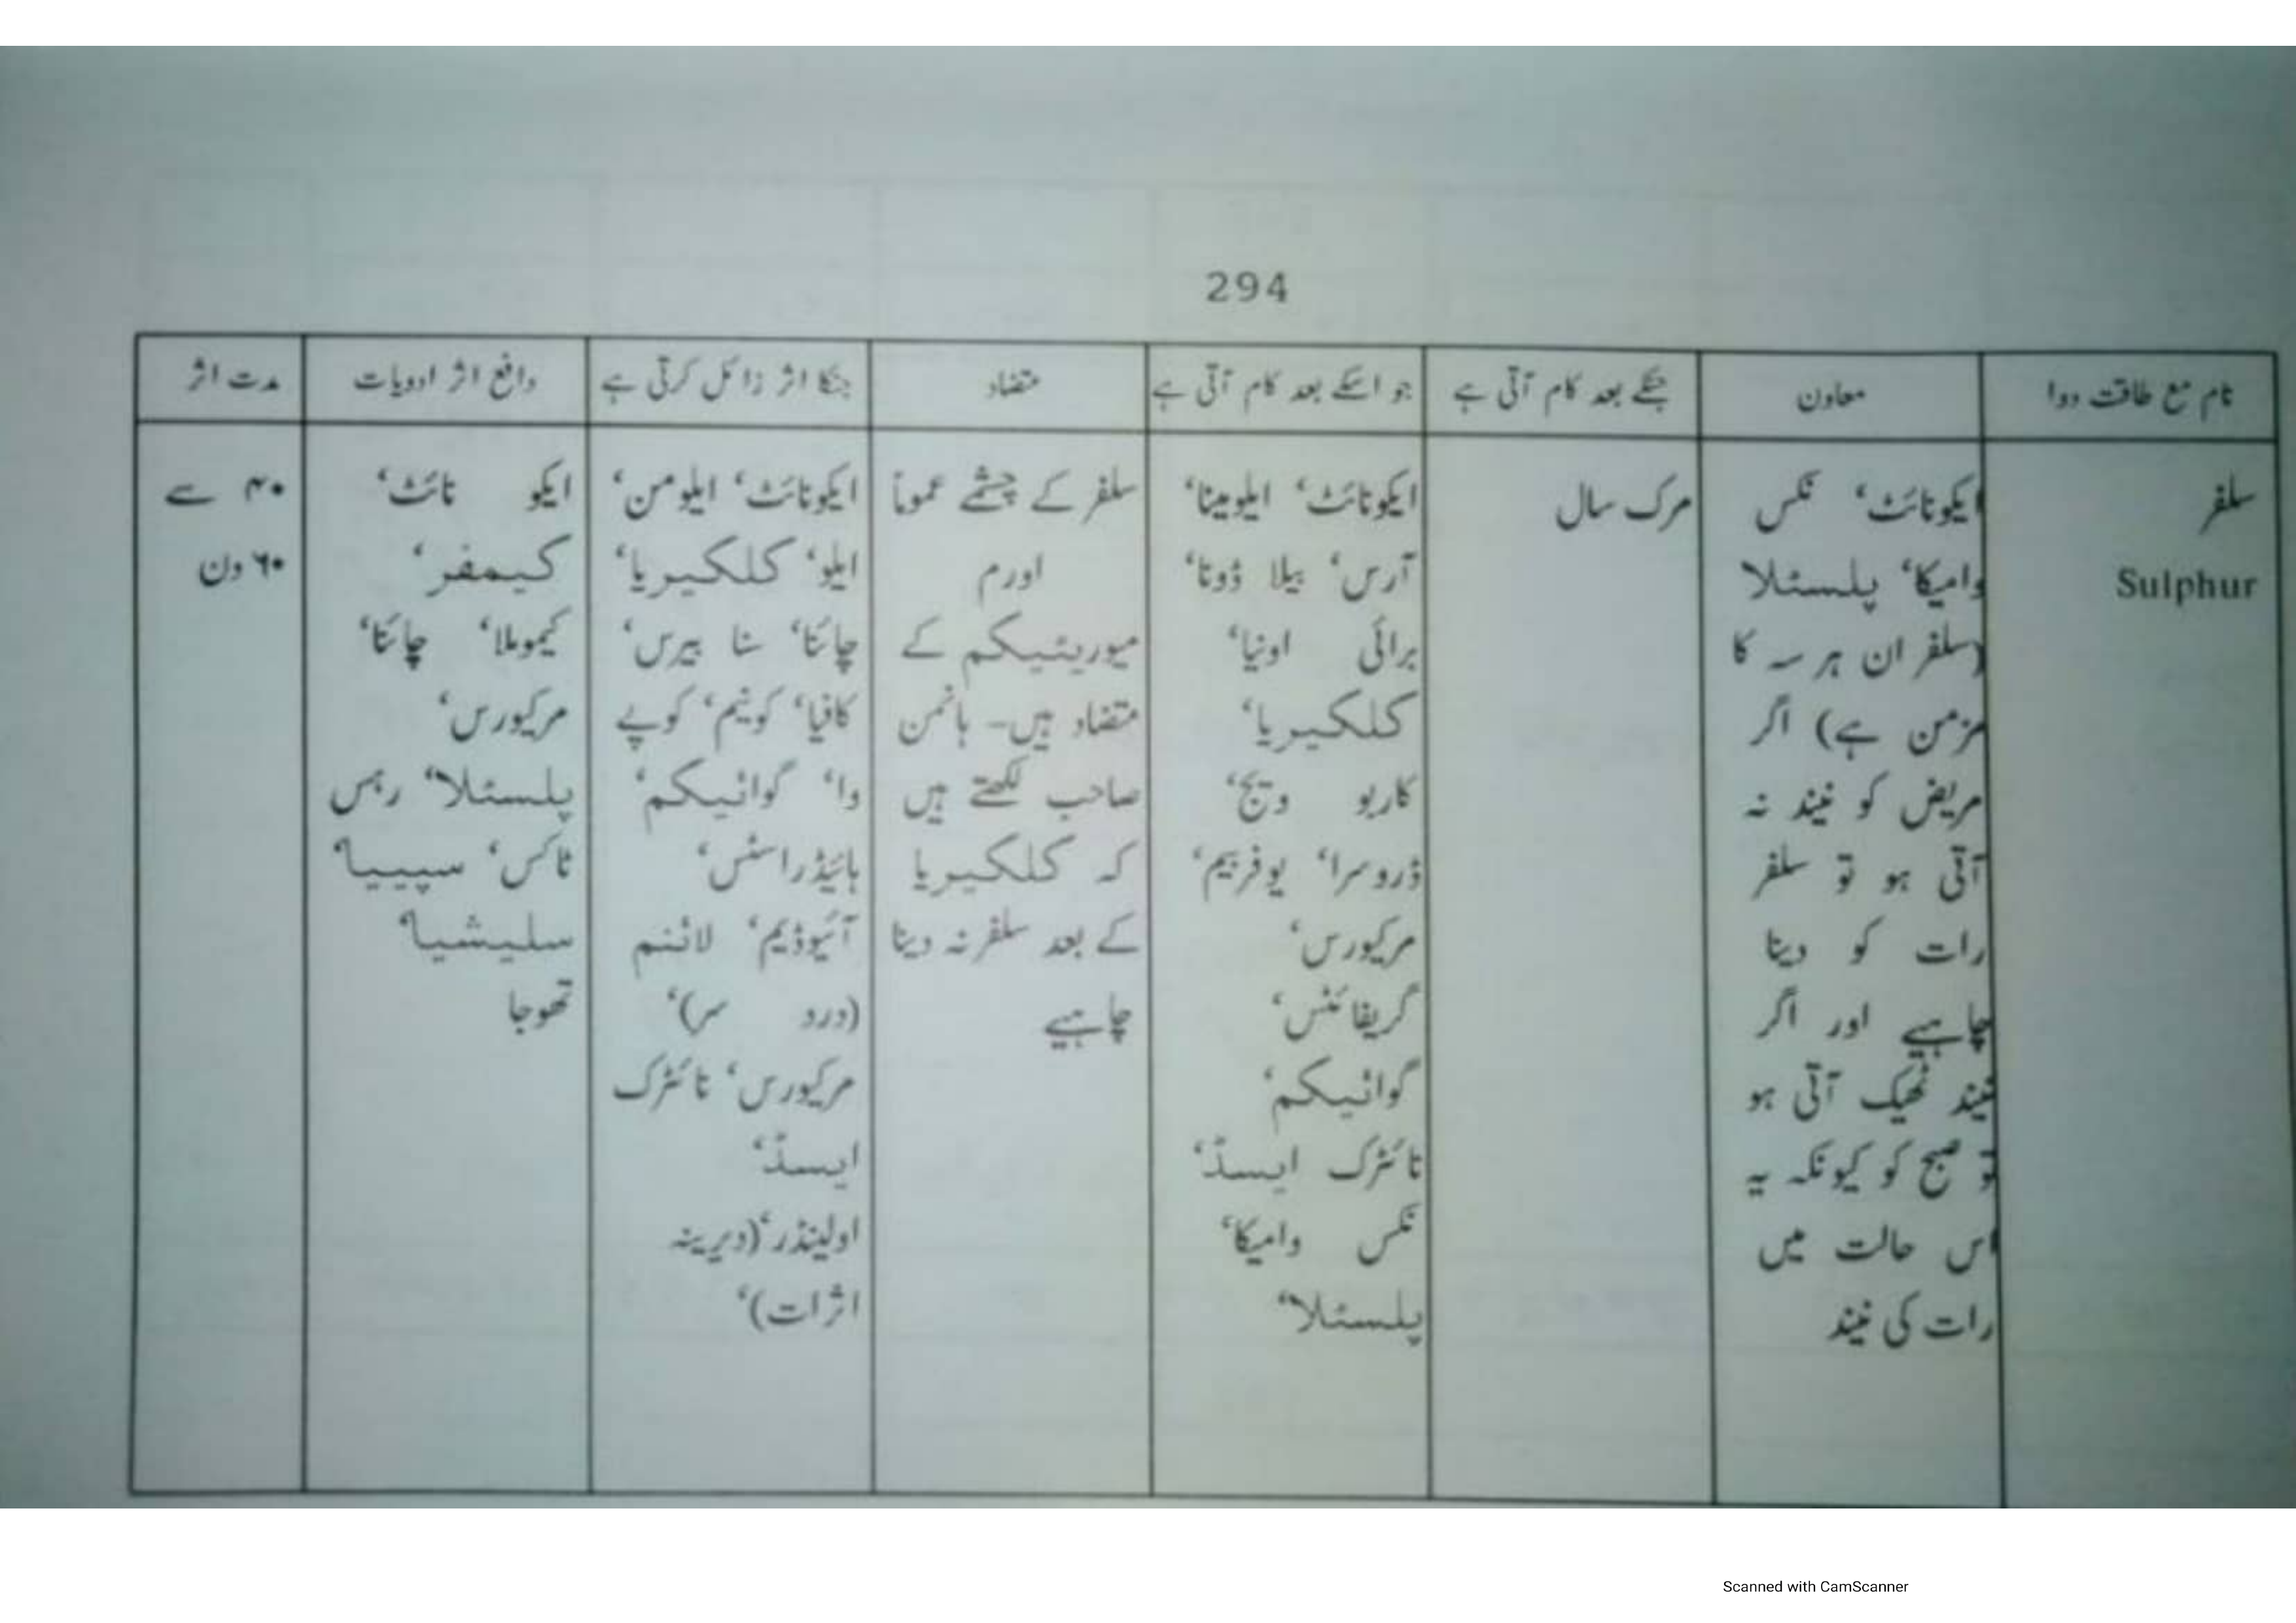 294
نام مع طاقت دوا
معاون
جنکے بعد کام آتی ہے
جو اسکے بعد کام آتی ہے
متضاد
جنکا اثر زائل کرتی ہے
دافع اثر ادویات
مدت اثر
سلفر
Sulphur
ایکونائٹ، نکس
وامیکا، پلسٹلا
(سلفر ان ہر سہ کا
مزمن ہے) اگر
مریض کو نیند نہ
آتی ہو تو سلفر
رات کو دینا
چاہیے اور اگر
نیند ٹھیک آتی ہو
تو صبح کو کیونکہ یہ
اس حالت میں
رات کی نیند
مرک سال
ایکونائٹ، ایلومینا،
آرس، بیلا ڈونا،
برائی اونیا،
کلکیریا،
کاربو ویج،
ڈروسرا، یوفربیم،
مرکیورس،
گریفائٹس،
گوائیکم،
نائٹرک ایسڈ،
نکس وامیکا،
پلسٹلا،
سلفر کے چشمے عموماً
اورم
میوریٹیکم کے
متضاد ہیں۔ ہانمن
صاحب لکھتے ہیں
کہ کلکیریا
کے بعد سلفر نہ دینا
چاہیے
ایکونائٹ، ایلومن،
ایلو، کلکیریا،
چائنا، سنا بیرس،
کافیا، کونیم، کوپے
وا، گوائیکم،
ہائیڈراسٹس،
آئیوڈیم، لائنم
(درد سر)،
مرکیورس، نائٹرک
ایسڈ،
اولینڈر،(دیرینہ
اثرات)،
ایکو نائٹ،
کیمفر،
کیموملا، چائنا،
مرکیورس،
پلسٹلا، رہس
ٹاکس، سیپیا،
سلیشیا،
تھوجا
۴۰ سے
۶۰ دن
Scanned with CamScanner